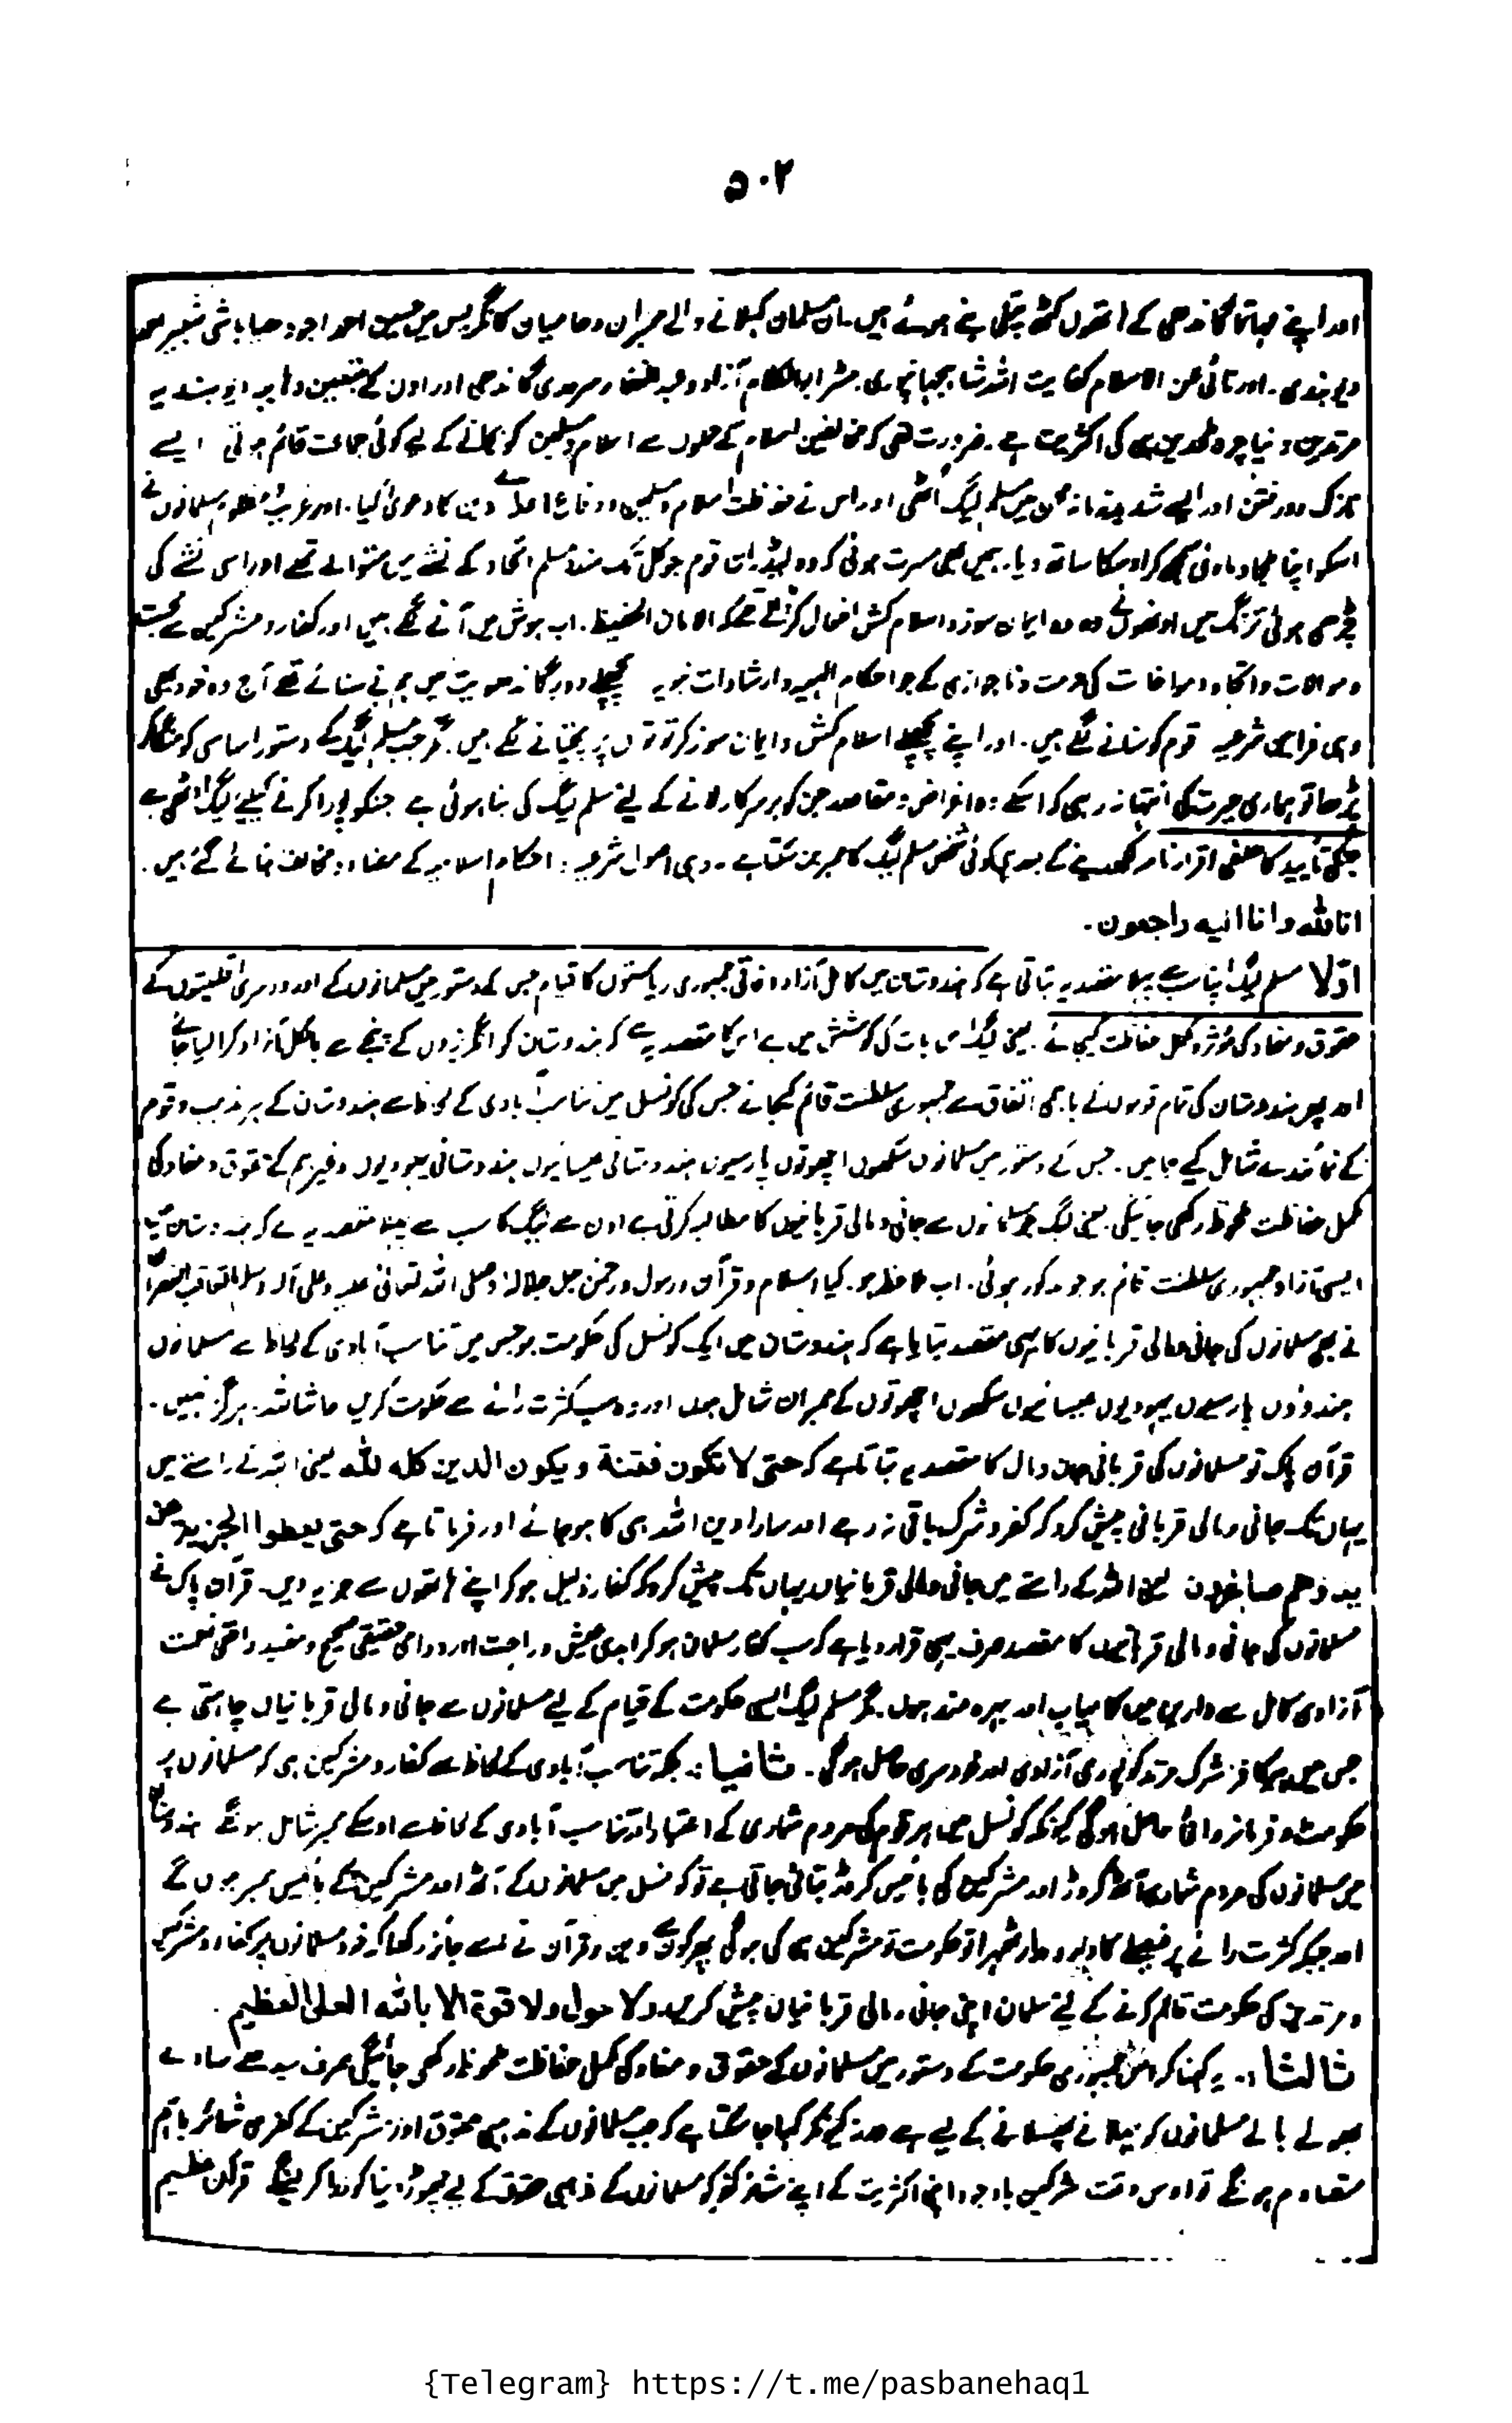 ۵۰۲
اور اپنے مہاتما گاندھی کے ہاتھوں کٹھ پتلی بنے ہوئے ہیں۔ ان مسلمان کہلانے والے ممبران و حامیان کانگریس میں حسین احمد اجودھیا باشی شبیر احمد
دیوبندی۔ اور نائی عن الاسلام کفایت اللہ شاہجہانپوری۔ مسٹر ابوالکلام آزاد و عبد الغفار سرحدی گاندھی اور اون کے متبعین وہابیہ دیوبندیہ
مرتدین و نیاچرہ ملحدین ہی کی اکثریت ہے۔ ضرورت تھی کہ مخالفین اسلام کے حملوں سے اسلام و مسلمین کو بچانے کے لیے کوئی جماعت قائم ہوتی ایسے
نازک دور فتن اور ایسے شدید زمانہ محن میں مسلم لیگ اٹھی اور اس نے حفاظت اسلام و مسلمین و دفاع اعدائے دین کا دعویٰ کیا۔ اور غریب مظلوم مسلمانوں نے
اسکو اپنا ملجا و ماویٰ سمجھ کر اوسکا ساتھ دیا۔ ہمیں بھی مسرت ہوئی کہ وہ لیڈران قوم جو کل تک ہندو مسلم اتحاد کے نشے میں متوالے تھے اور اسی نشے کی
چڑھی ہوئی ترنگ میں اونھوں نے وہ وہ ایمان سوز و اسلام کش افعال کر ڈالے تھے کہ الامان الحفیظ۔ اب ہوش میں آنے لگے ہیں اور کفار و مشرکین سے محبت
و موالات و اتحاد و مواخات کی حرمت و ناجوازی کے جو احکام الہیہ و ارشادات نبویہ پچھلے دور گاندھویت میں ہم نے سنائے تھے آج وہ خود بھی
وہی فرامین شرعیہ قوم کو سنانے لگے ہیں۔ اور اپنے پچھلے اسلام کش و ایمان سوز کرتوتوں پر پچتانے لگے ہیں۔ مگر جب مسلم لیگ کے دستور اساسی کو منگا کر
پڑھا تو ہماری حیرت کی انتہا نہ رہی کہ اسکے وہ اغراض و مقاصد جن کو برسر کار لانے کے لئے مسلم لیگ کی بنا ہوئی ہے جنکو پورا کرنے کیلئے لیگ اٹھی ہے
جنکی تائید کا حلفی اقرار نامہ لکھدینے کے بعد ہی کوئی شخص مسلم لیگ کا ممبر بن سکتا ہے۔ وہی اصول شرعیہ و احکام اسلامیہ کے مضاد و مخالف بنائے گئے ہیں۔
انا للہ وانا الیه راجعون۔
اوّلا مسلم لیگ اپنا سب سے پہلا مقصد یہ بتاتی ہے کہ ہندوستان میں کامل آزاد وفاقی جمہوری ریاستوں کا قیام جس کے دستور میں مسلمانوں کے اور دوسری اقلیتوں کے
حقوق و مفاد کی مؤثر و مکمل حفاظت کیجائے۔ یعنی لیگ اس بات کی کوشش میں ہے اس کا مقصد یہ ہے کہ ہندوستان کو انگریزوں کے پنجے سے بالکل آزاد کرالیا جائے
اور پھر ہندوستان کی تمام قوموں کے باہمی اتفاق سے جمہوری سلطنت قائم کیجائے جس کی کونسل میں تناسب آبادی کے لحاظ سے ہندوستان کے ہر مذہب و قوم
کے نمائندے شامل کیے جائیں۔ جس کے دستور میں مسلمانوں سکھوں اچھوتوں پارسیوں ہندوستانی عیسائیوں ہندوستانی یہودیوں وغیرہم کے حقوق و مفاد کی
مکمل حفاظت ملحوظ رکھی جائیگی۔ یعنی لیگ جو مسلمانوں سے جانی و مالی قربانیوں کا مطالبہ کرتی ہے اون سے لیگ کا سب سے پہلا مقصد یہ ہے کہ ہندوستان میں
ایسی آزاد جمہوری سلطنت قائم ہو جو مذکور ہوئی۔ اب ملاحظہ ہو۔ کیا اسلام و قرآن و رسول و رحمٰن جل جلالہ و صلی اللہ تعالیٰ علیہ و علی آلہ وسلم
نے بھی مسلمانوں کی جانی و مالی قربانیوں کا یہی مقصد بتایا ہے کہ ہندوستان میں ایک کونسل کی حکومت ہو جس میں تناسب آبادی کے لحاظ سے مسلمانوں
ہندوؤں پارسیوں یہودیوں عیسائیوں سکھوں اچھوتوں کے ممبران شامل ہوں اور وہ سب کثرت رائے سے حکومت کریں حاشا للہ۔ ہرگز نہیں۔
قرآن پاک تو مسلمانوں کی قربانی جان و مال کا مقصد یہ بتاتا ہے کہ حتی لا تکون فتنة و یکون الدین کله لله یعنی اللہ کے راستے میں
یہاں تک جانی و مالی قربانی پیش کرو کہ کفر و شرک باقی نہ رہے اور سارا دین اللہ ہی کا ہو جائے اور فرماتا ہے کہ حتی یعطوا الجزیة عن
ید وهم صاغرون یعنی اللہ کے راستے میں جانی و مالی قربانیاں یہاں تک پیش کرو کہ کفار ذلیل ہو کر اپنے ہاتھوں سے جزیہ دیں۔ قرآن پاک نے
مسلمانوں کی جانی و مالی قربانیوں کا مقصد صرف یہی قرار دیا ہے کہ سب کفار مسلمان ہو کر ابدی عیش و راحت اور دوامی حقیقی صحیح و مفید واقعی نعمت
آزادی کامل سے دارین میں کامیاب اور بہرہ مند ہوں۔ مگر مسلم لیگ ایسی حکومت کے قیام کے لیے مسلمانوں سے جانی و مالی قربانیاں چاہتی ہے
جس میں ہر کافر مشرک مرتد کو پوری آزادی اور خود سری حاصل ہوگی۔ ثانیا: بلکہ تناسب آبادی کے لحاظ سے کفار و مشرکین ہی کو مسلمانوں پر
حکومت و فرمانروائی حاصل ہوگی کیونکہ کونسل میں ہر قوم کی مردم شماری کے اعتبار اور تناسب آبادی کے لحاظ سے اوسکے ممبر شامل ہونگے ہندوستان
میں مسلمانوں کی مردم شماری آٹھ کروڑ اور مشرکین کی بائیس کروڑ بتائی جاتی ہے تو کونسل میں مسلمانوں کے آٹھ اور مشرکین کے بائیس ممبر ہوں گے
اور جبکہ کثرت رائے پر فیصلے کا دارو مدار ٹھہرا تو حکومت تو مشرکین ہی کی ہوگی پھر کون سے دین و قرآن نے اسے جائز رکھا کہ خود مسلمانوں پر کفار و مشرکین
و مرتدین کی حکومت قائم کرنے کے لئے مسلمان اپنی جانی و مالی قربانیاں پیش کریں۔ ولا حول ولا قوة الا بالله العلی العظیم۔
ثالثا:۔ یہ کہنا کہ اس جمہوری حکومت کے دستور میں مسلمانوں کے حقوق و مفاد کی مکمل حفاظت ملحوظ رکھی جائیگی صرف سیدھے سادے
بھولے بالے مسلمانوں کو بہلانے پھسلانے کے لیے ہے ورنہ کیونکر کہا جا سکتا ہے کہ جب مسلمانوں کے مذہبی حقوق اور مشرکین کے کفری شعائر باہم
متصادم ہونگے تو اوس وقت مشرکین باوجود اپنی اکثریت کے اپنے شعائر کفر کو مسلمانوں کے مذہبی حقوق کے لیے چھوڑ دینا گوارا کرینگے قرآن عظیم
{Telegram} https://t.me/pasbanehaq1